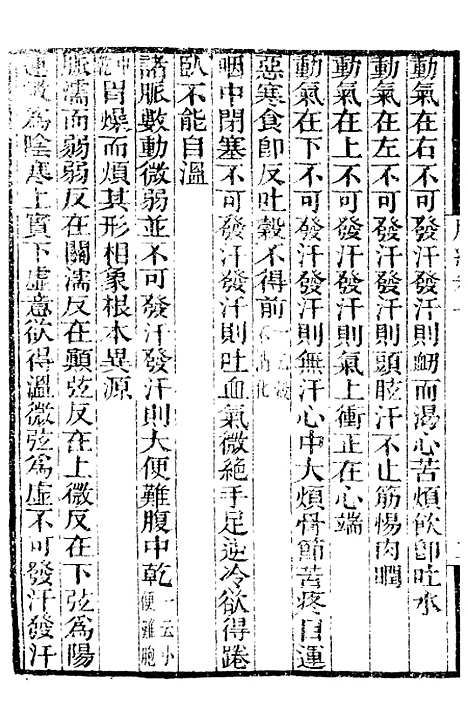 動氣在右不可發汗發汗則衂而渴心苦煩飲卽吐水
動氣在左不可發汗發汗則頭眩汗不止筋惕肉瞤
動氣在上不可發汗發汗則氣上衝正在心端
動氣在下不可發汗發汗則無汗心中大煩骨節苦疼目運
惡寒食卽反吐穀不得前
咽中閉塞不可發汗發汗則吐血氣微絕手足逆冷欲得踡
臥不能自溫
諸脈數動微弱並不可發汗發汗則大便難腹中乾一云小便難胞
中乾胃燥而煩其形相象根本異源
脈濡而弱弱反在關濡反在顚弦反在上微反在下弦爲陽
運微爲陰寒上實下虛意欲得溫微弦爲虛不可發汗發汗